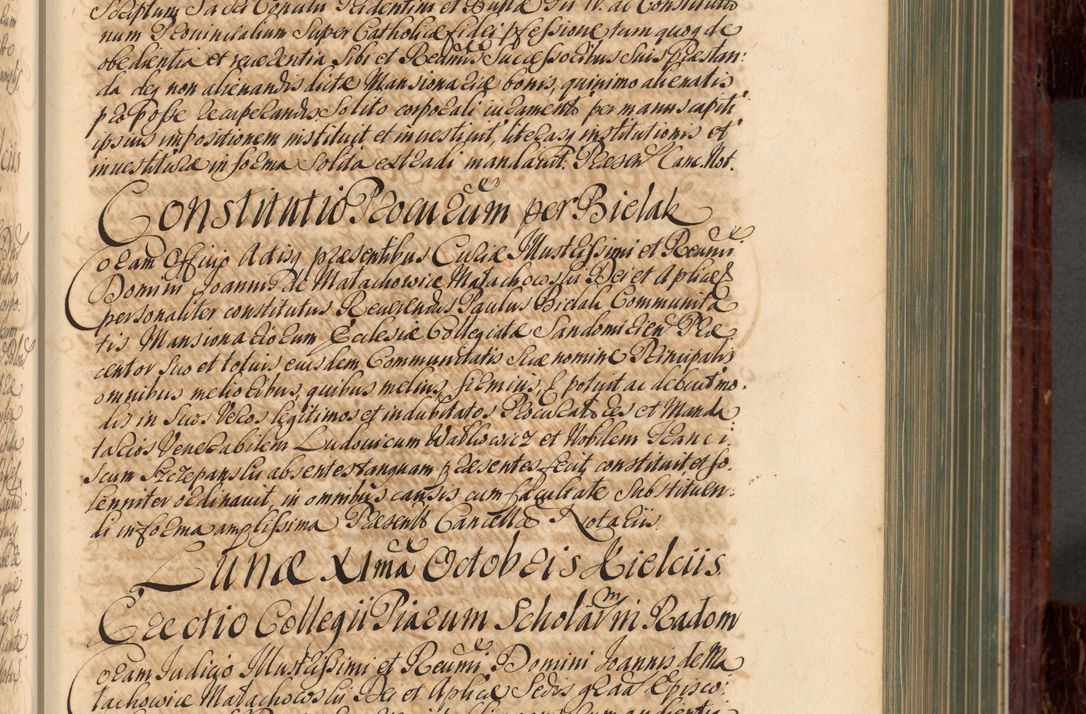 num Dominicalium Super Catholicæ fidei professione tum quoq de
obedientia et reverentia Sibi et Redmis Successoribus Suis Præstan:
da deq non alienandis dictæ Mansionariæ bonis, quinimo alienatis
pro posse recuperandis Solito corporali iuramento per manus capiti
ipsius impositionem instituit et investivit, literasq institutionis et
investituræ in forma Solita extradi mandavit. Præsen Canc. Not.
Constitutio Procurum per Bielak
Coram Officio Actisq præsentibus Curiæ Illustrissimi et Reumi
Domini Joannis de Małachowice Małachowski Dei et Aplicæ
personaliter constitutus Reverendus Paulus Bielak Communita
tis Mansionariorum Ecclesiæ Collegiatæ Sandomirien Præ
centor Suo et totius eiusdem Communitatis Suæ nomine Principalis
omnibus melioribus, quibus melius, firmius, potuit ac debuit mo.
dis in Suos Veros, legitimos et indubitatos Procuratores et Manda
tarios Venerabilem Ludovicum Wathowicz et Nobilem Franci:
scum Szczepanski absentes tanquam præsentes fecit, constituit et so.
lenniter ordinavit, in omnibus causis cum facultate Substituen:
di in forma amplissima Præsenti Cancellæ Notariis
Lunæ XIma Octobris Kielciis
Erectio Collegii Piarum Scholarum ni Radom
Coram Judicio Illustrissimi et Reumi Domini Joannis de Ma
łachowice Małachowski Dei et Aplicæ Sedis graa Episco: